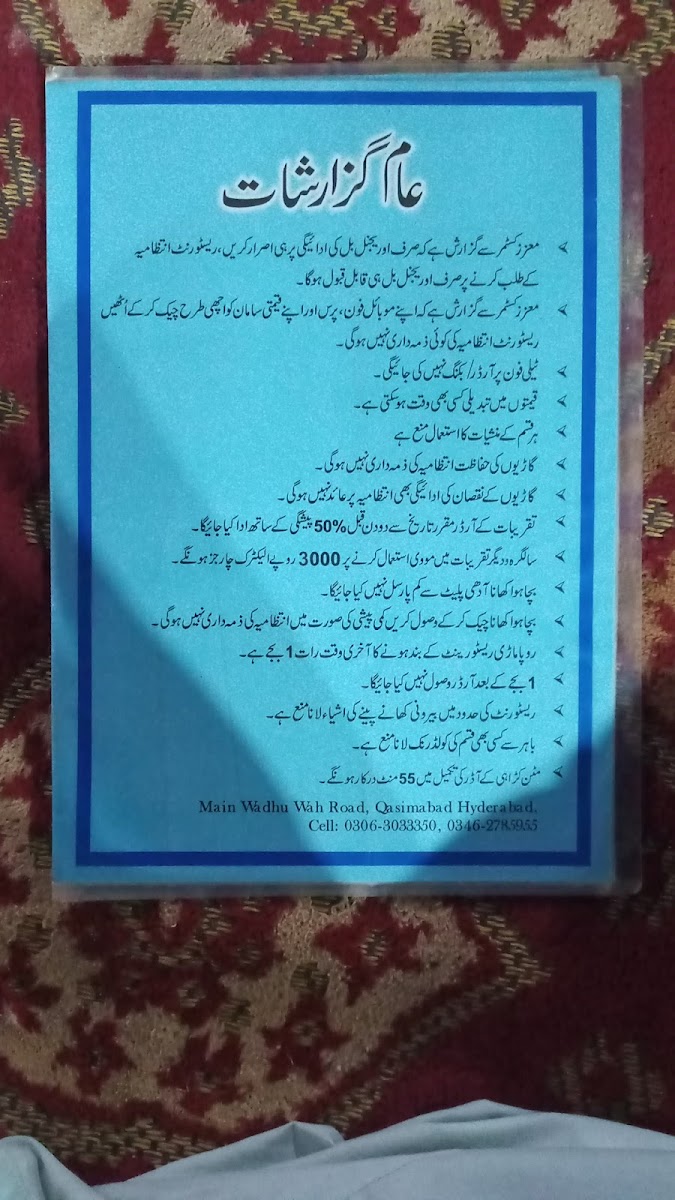 عام گزارشات
معزز کسٹمر سے گزارش ہے کہ صرف اوریجنل بل کی ادائیگی پر ہی اصرار کریں، ریسٹورنٹ انتظامیہ
کے طلب کرنے پر صرف اوریجنل بل ہی قابل قبول ہوگا۔
معزز کسٹمر سے گزارش ہے کہ اپنے موبائل فون، پرس اور اپنے قیمتی سامان کو اچھی طرح چیک کر کے اُٹھیں
ریسٹورنٹ انتظامیہ کی کوئی ذمہ داری نہیں ہوگی۔
ٹیلی فون پر آرڈر/ بکنگ نہیں کی جائیگی۔
قیمتوں میں تبدیلی کسی بھی وقت ہوسکتی ہے۔
ہر قسم کے منشیات کا استعمال منع ہے
گاڑیوں کی حفاظت انتظامیہ کی ذمہ داری نہیں ہوگی۔
گاڑیوں کے نقصان کی ادائیگی بھی انتظامیہ پر عائد نہیں ہوگی۔
تقریبات کے آرڈر مقرر تاریخ سے دو دن قبل 50% پیشگی کے ساتھ ادا کیا جائیگا۔
سالگرہ و دیگر تقریبات میں مووی استعمال کرنے پر 3000 روپے الیکٹرک چارجز ہونگے۔
بچا ہوا کھانا آدھی پلیٹ سے کم پارسل نہیں کیا جائیگا۔
بچا ہوا کھانا چیک کر کے وصول کریں کمی پیشی کی صورت میں انتظامیہ کی ذمہ داری نہیں ہوگی۔
روپاماڑی ریسٹورینٹ کے بند ہونے کا آخری وقت رات 1 بجے ہے۔
1 بجے کے بعد آرڈر وصول نہیں کیا جائیگا۔
ریسٹورنٹ کی حدود میں بیرونی کھانے پینے کی اشیاء لانا منع ہے۔
باہر سے کسی بھی قسم کی کولڈرنک لانا منع ہے۔
مٹن کڑاہی کے آڈر کی تکمیل میں 55 منٹ درکار ہونگے۔
Main Wadhu Wah Road, Qasimabad Hyderabad,
Cell: 0306-3033350, 0346-2785955